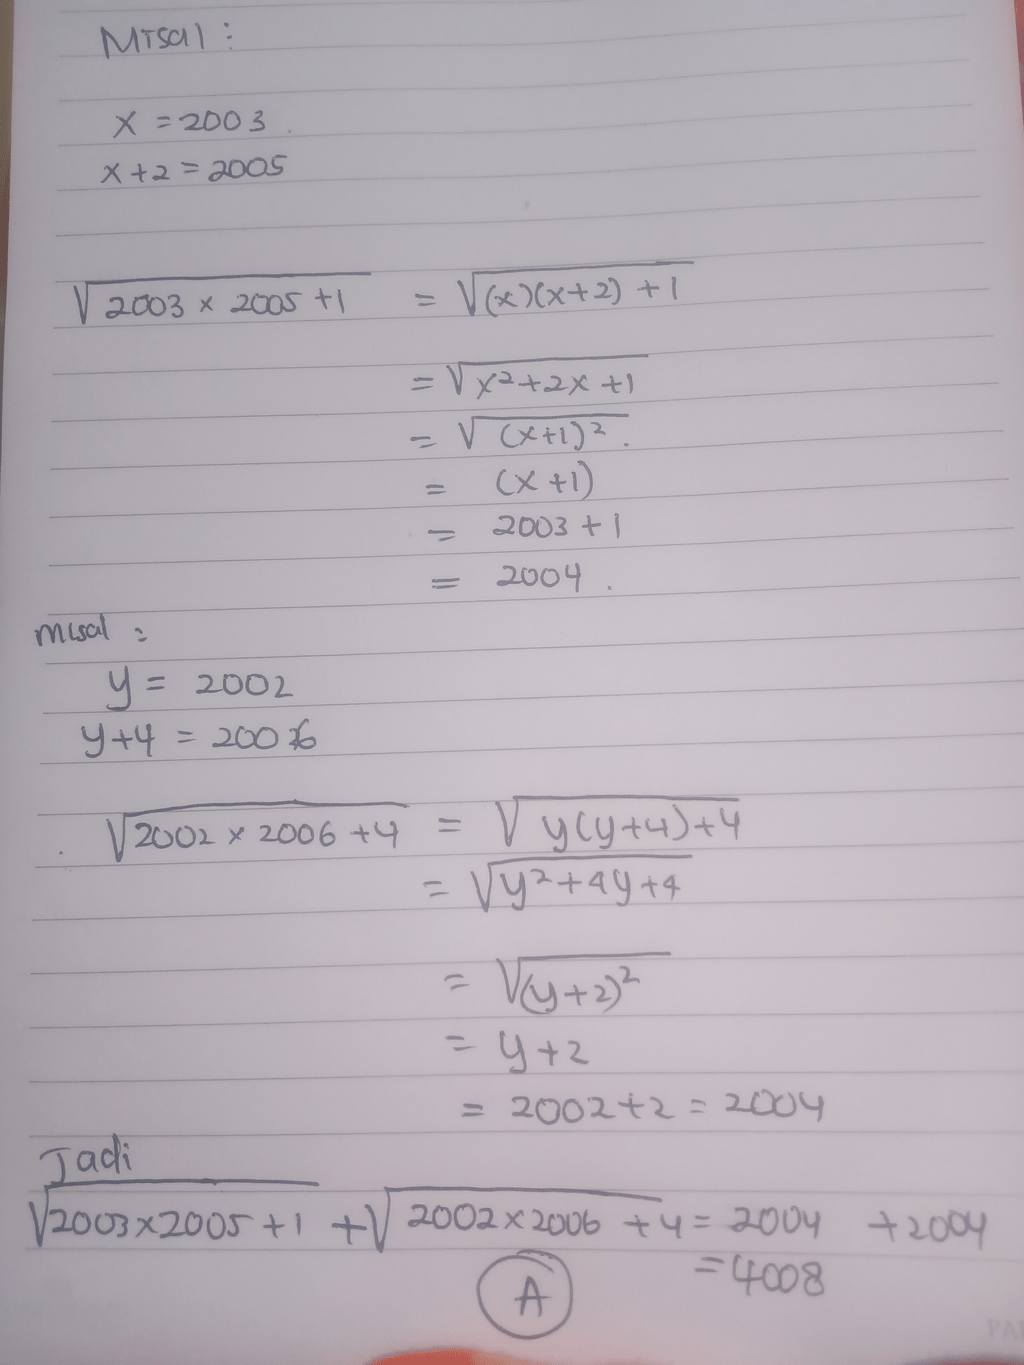 Misal :
x = 2003
x+2 = 2005
√2003 x 2005 +1 = √(x)(x+2) +1
= √x²+2x +1
= √(x+1)².
= (x+1)
= 2003 + 1
= 2004.
misal :
y = 2002
y+4 = 2006
√2002 x 2006 +4 = √y(y+4)+4
= √y²+4y+4
= √(y+2)²
= y+2
= 2002+2 = 2004
Jadi
√2003x2005 +1 + √2002x2006 +4 = 2004 +2004
=4008
A